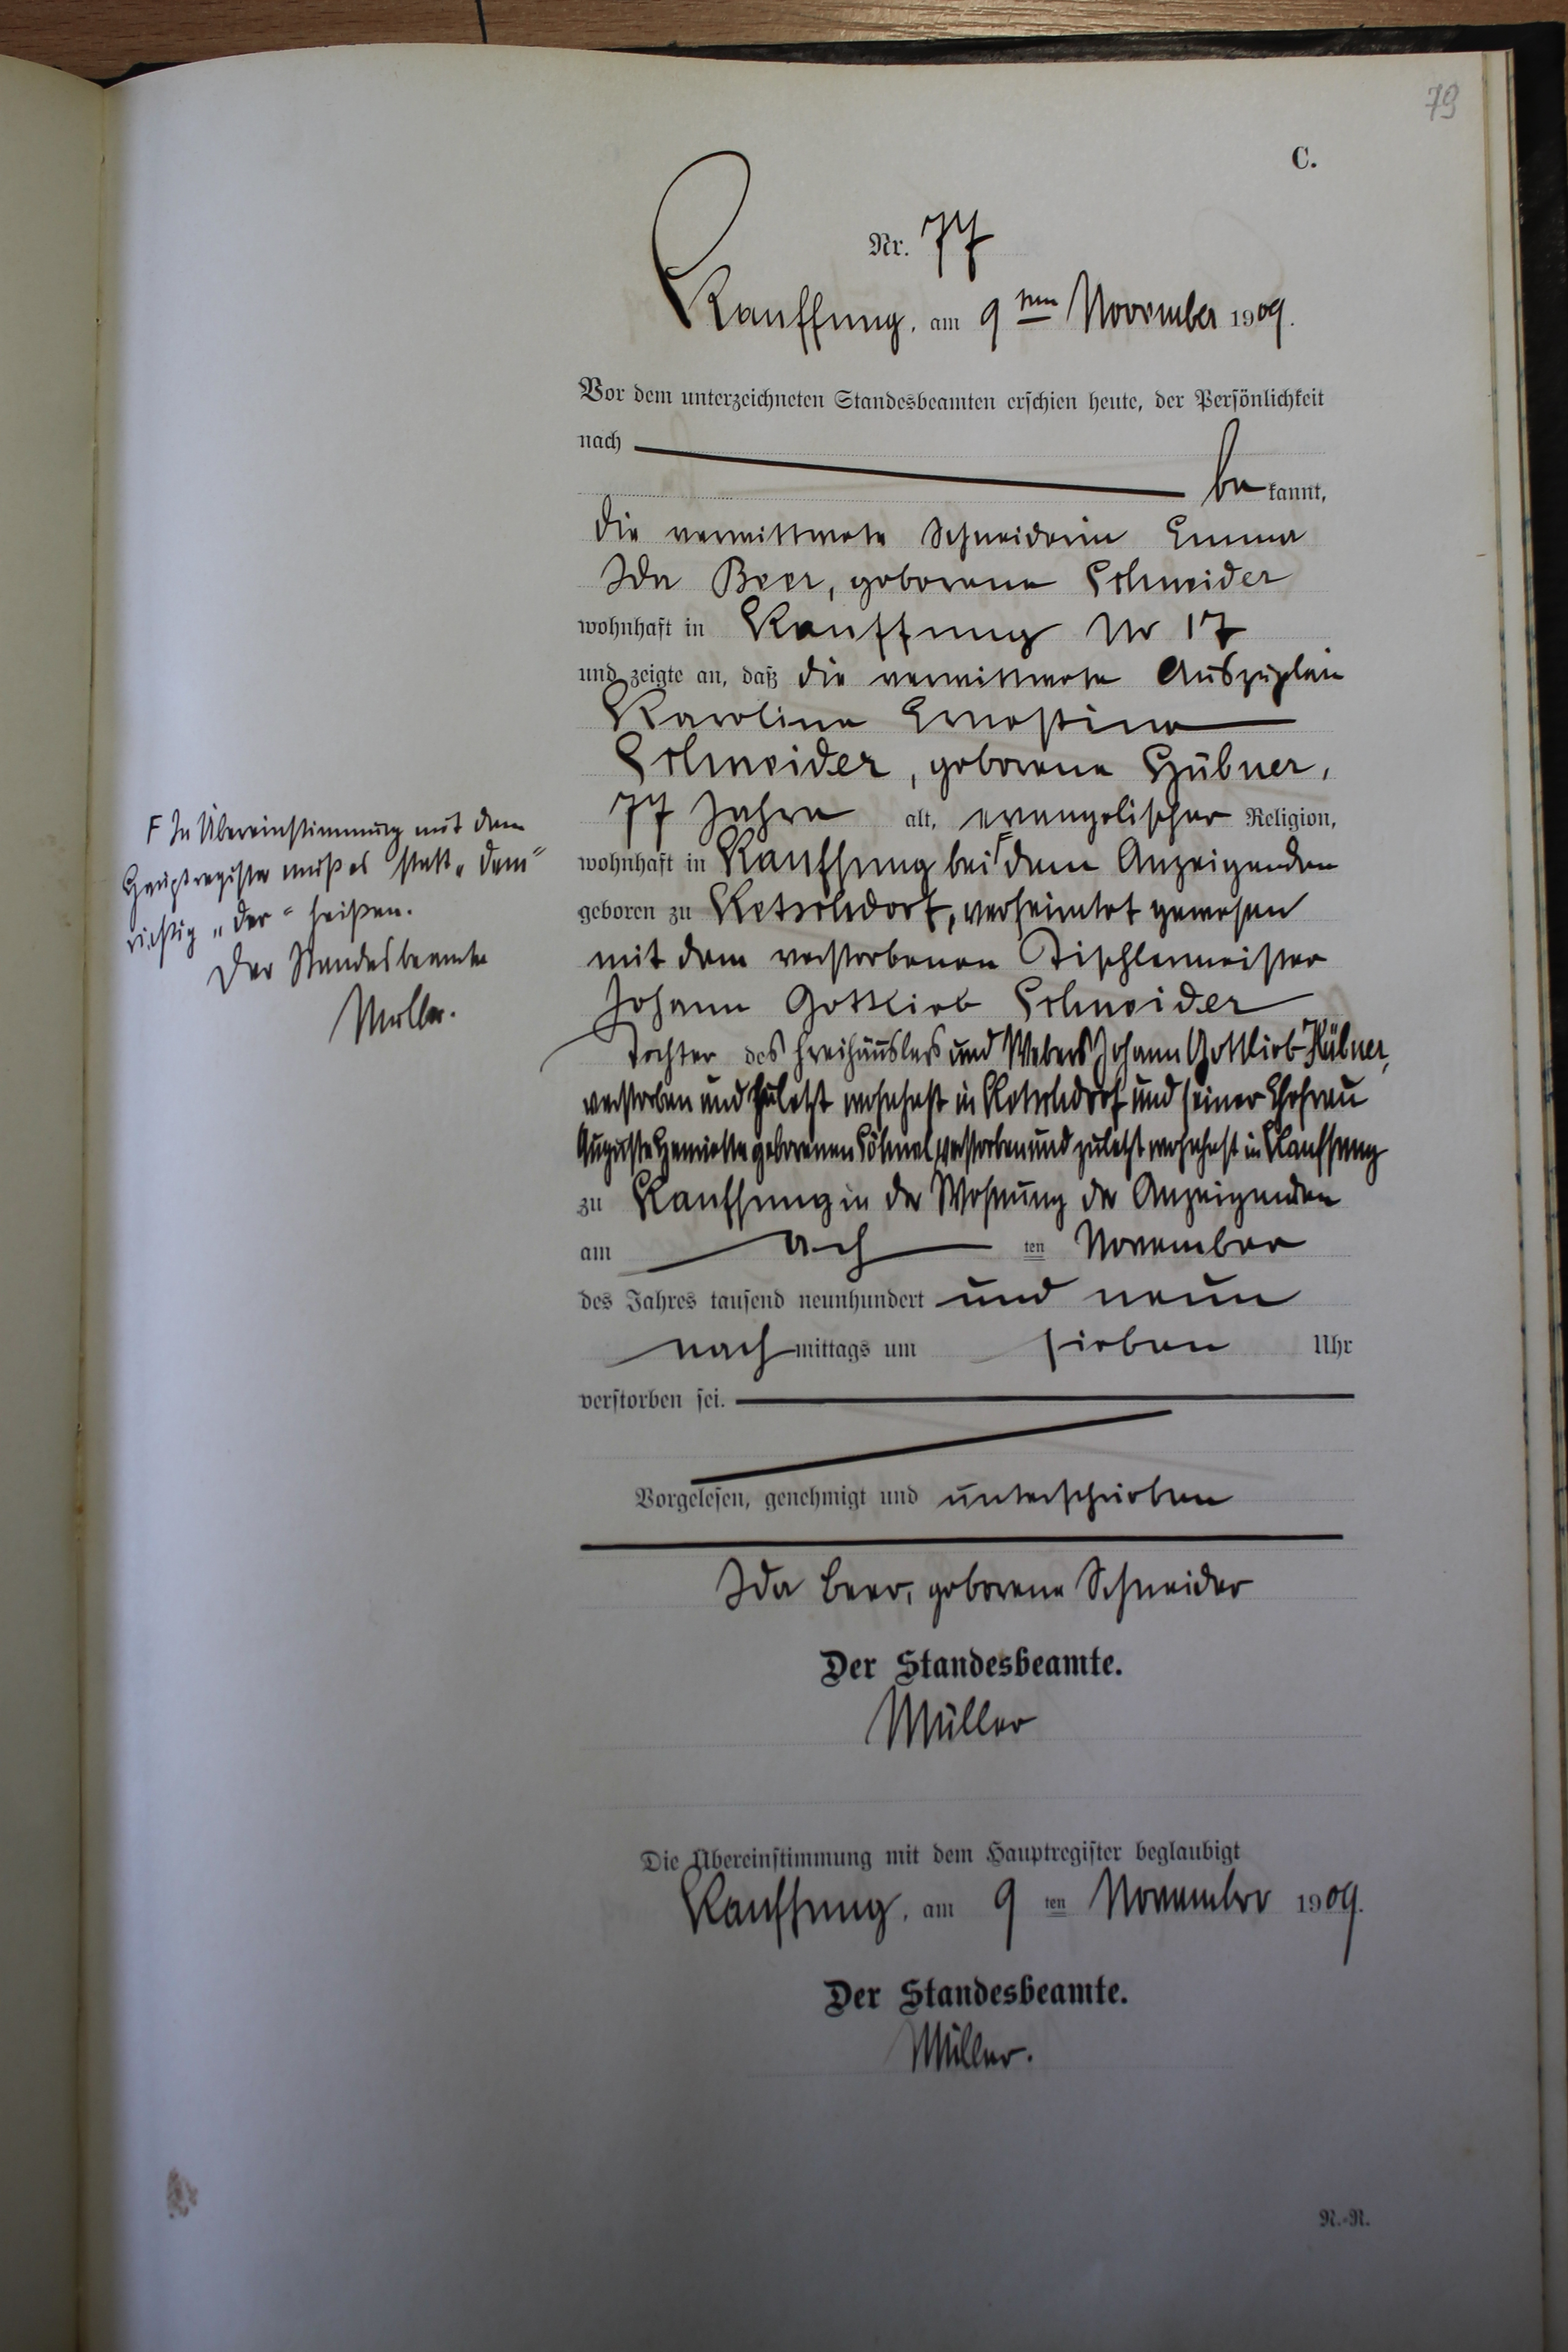 79
C.
Nr. 77
Kauffung, am 9ten November 1909.
Vor dem unterzeichneten Standesbeamten erschien heute, der Persönlichkeit
nach
be kannt,
die verwittwete Schneiderin Emma
Ida Beer, geborene Schneider
wohnhaft in Kauffung Nr 17
und zeigte an, daß die verwittwete Auszüglerin
Karoline Ernestine
Schneider, geborene Hübner,
77 Jahre alt, evangelischer Religion,
wohnhaft in Kauffung bei F dem Anzeigenden
geboren zu Ketschdorf, verheiratet gewesen
mit dem verstorbenen Tischlermeister
Johann Gottlieb Schneider
Tochter des Freihäuslers und Webers Johann Gottlieb Hübner,
verstorben und zuletzt wohnhaft in Ketschdorf und seiner Ehefrau
Auguste Henriette geborenen verstorben und zuletzt wohnhaft in Kauffung
zu Kauffung in der Wohnung der Anzeigenden
am ach ten November
des Jahres tausend neunhundert und neun
nach mittags um sieben Uhr
verstorben sei.
Vorgelesen, genehmigt und unterschrieben
Ida Beer, geborene Schneider
Der Standesbeamte.
Müller
Die Übereinstimmung mit dem Hauptregister beglaubigt
Kauffung, am 9 ten November 1909.
Der Standesbeamte.
Müller.
N.-N.
F In Übereinstimmung mit dem
Hauptregister muß es statt „dem"
richtig „der" heißen.
Der Standesbeamte
Müller.